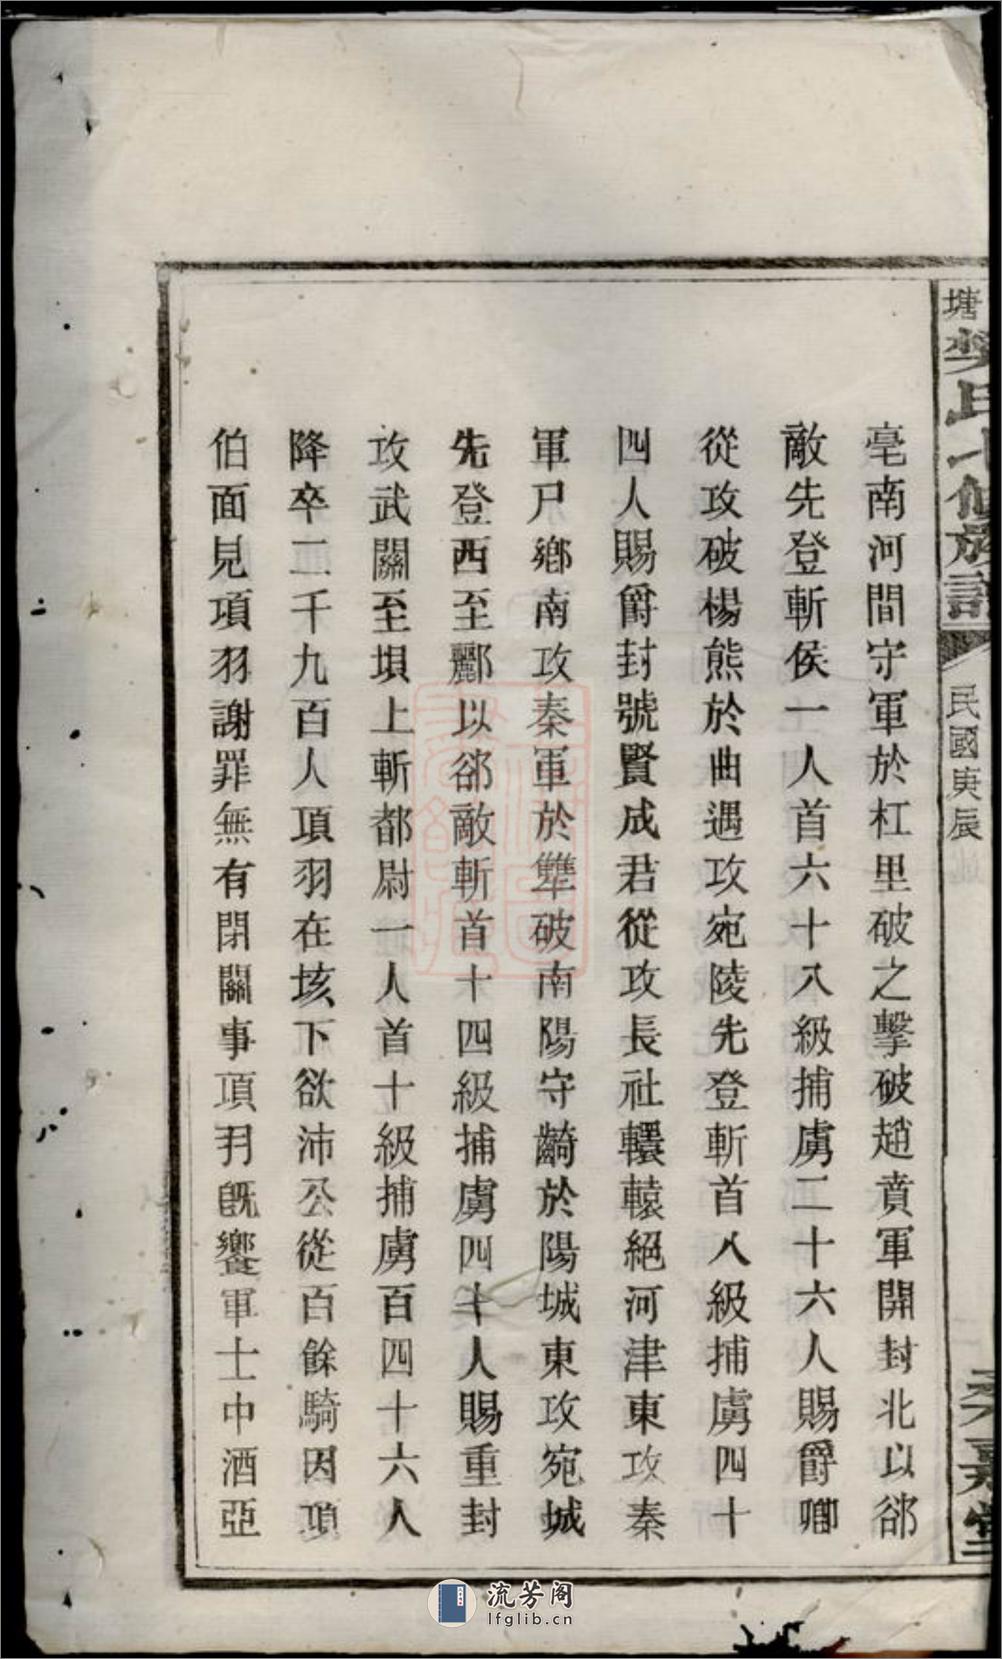 塘樊氏七修族譜
民國庚辰
亳南河間守軍於杠里破之擊破趙賁軍開封北以郤
敵先登斬侯一人首六十八級捕虜二十六人賜爵卿
從攻破楊熊於曲遇攻宛陵先登斬首八級捕虜四十
四人賜爵封號賢成君從攻長社轘轅絕河津東攻秦
軍尸鄉南攻秦軍於犨破南陽守齮於陽城東攻宛城
先登西至酈以郤敵斬首十四級捕虜四十人賜重封
攻武關至垻上斬都尉一人首十級捕虜百四十六人
降卒二千九百人項羽在垓下欲沛公從百餘騎因項
伯面見項羽謝罪無有閉關事項羽旣饗軍士中酒亞
流芳阁
lfglib.cn